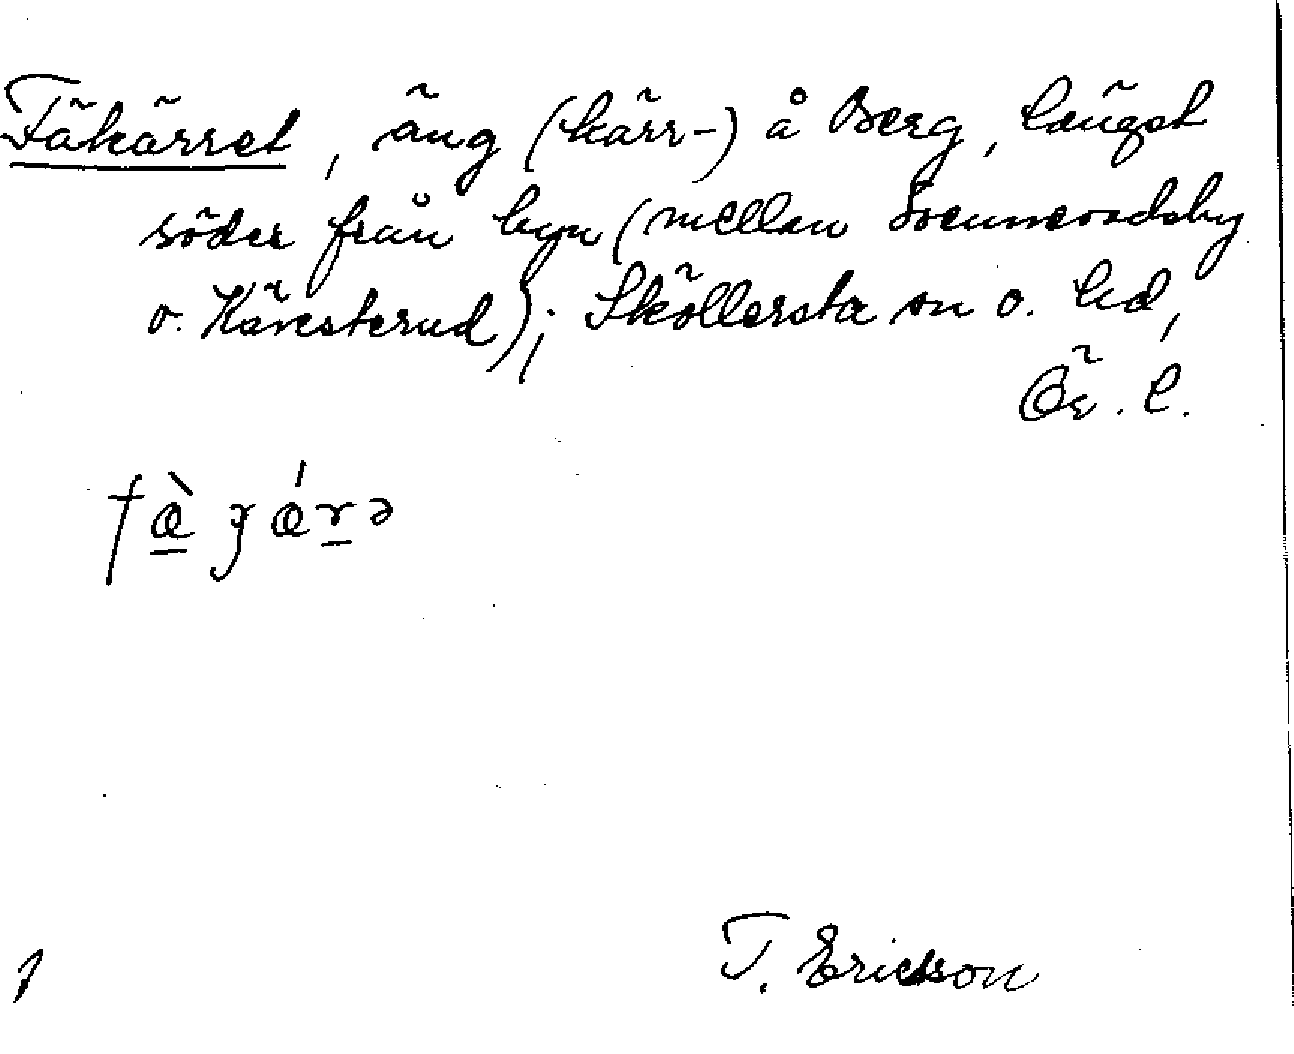 Fäkärret, äng (kärr-) å Berg, längst
söder från byn (mellan Svennevadsby
o. Hävesterud); Sköllersta sn o. hd,
Ör. l.
fæ̀ gǽrə
T. Ericsson